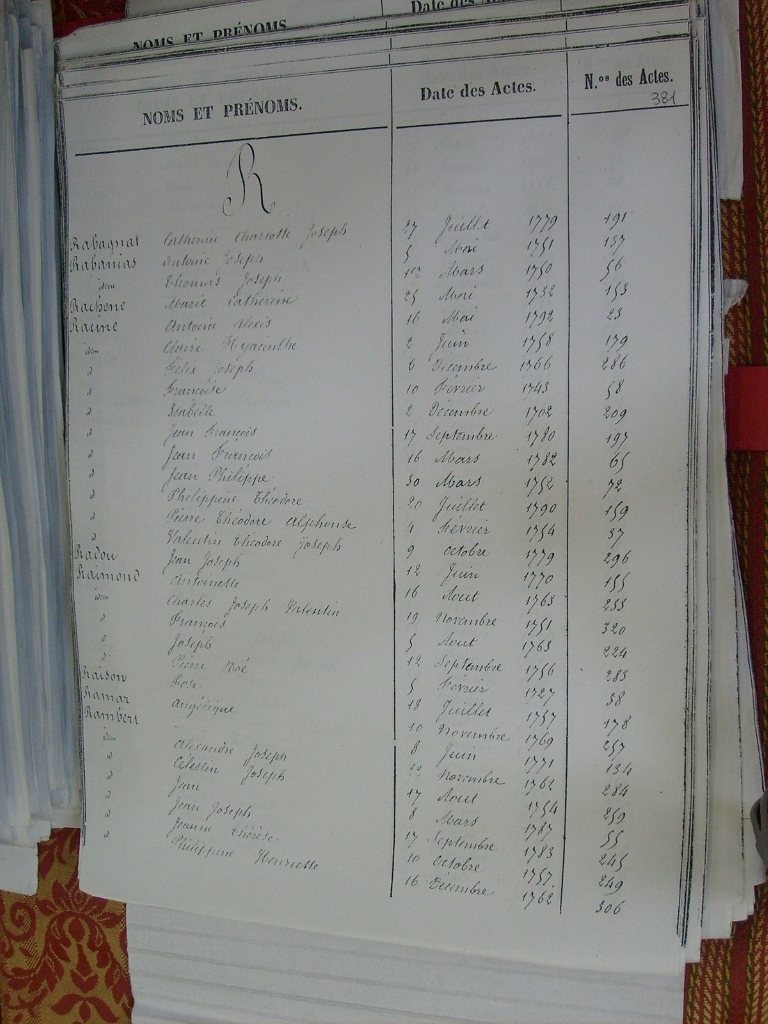 NOMS ET PRÉNOMS.
NOMS ET PRÉNOMS. Date des Actes. N.os des Actes.
381
R
Rabagnat Catherine Charlotte Joseph 27 Juillet 1779 191
Rabanias Antoine Joseph 5 Mai 1751 137
idem Thomas Joseph 1er Mars 1750 56
Rachene Marie Catherine 25 Mai 1732 153
Racine Antoine Alexis 16 Mai 1792 23
idem Claire Hyacinthe 2 Juin 1758 179
d Félix Joseph 6 Décembre 1766 286
d Françoise 10 Février 1743 58
d Isabelle 2 Décembre 1702 209
d Jean François 17 Septembre 1780 197
d Jean François 16 Mars 1782 65
d Jean Philippe 30 Mars 1752 72
d Philippine Théodore 20 Juillet 1790 159
d Pierre Théodore Alphonse 4 Février 1754 37
d Valentin Théodore Joseph 9 octobre 1779 296
Radou Jean Joseph 12 Juin 1770 155
Raimond Antoinette 16 Aout 1763 233
idem Charles Joseph Valentin 19 Novembre 1751 320
d François 5 Aout 1763 224
d Joseph 12 Septembre 1756 283
d Pierre Noé 5 Février 1727 38
Raison Rose 12 Juillet 1757 178
Ramar Angélique 10 Novembre 1769 257
Rambert — 8 Juin 1771 134
idem Alexandre Joseph Novembre 1762 284
d Célestin Joseph 17 Aout 1754 259
d Jean 8 Mars 1787 55
d Jean Joseph 17 Septembre 1783 245
d Jeanne Thérèse 10 Octobre 1757 249
d Philippine Henriette 16 Décembre 1762 306